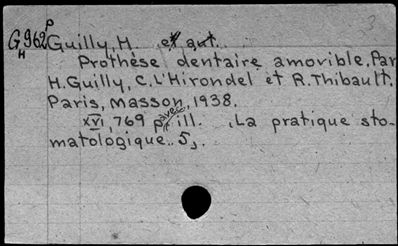 3
G962p Guilly, H. et aut.
H
Prothèse dentaire amovible. Par
H. Guilly, C. L'Hirondel et R. Thibault.
Paris, Masson, 1938.
xvi, 769 p. avec ill. (La pratique sto-
matologique. 5)